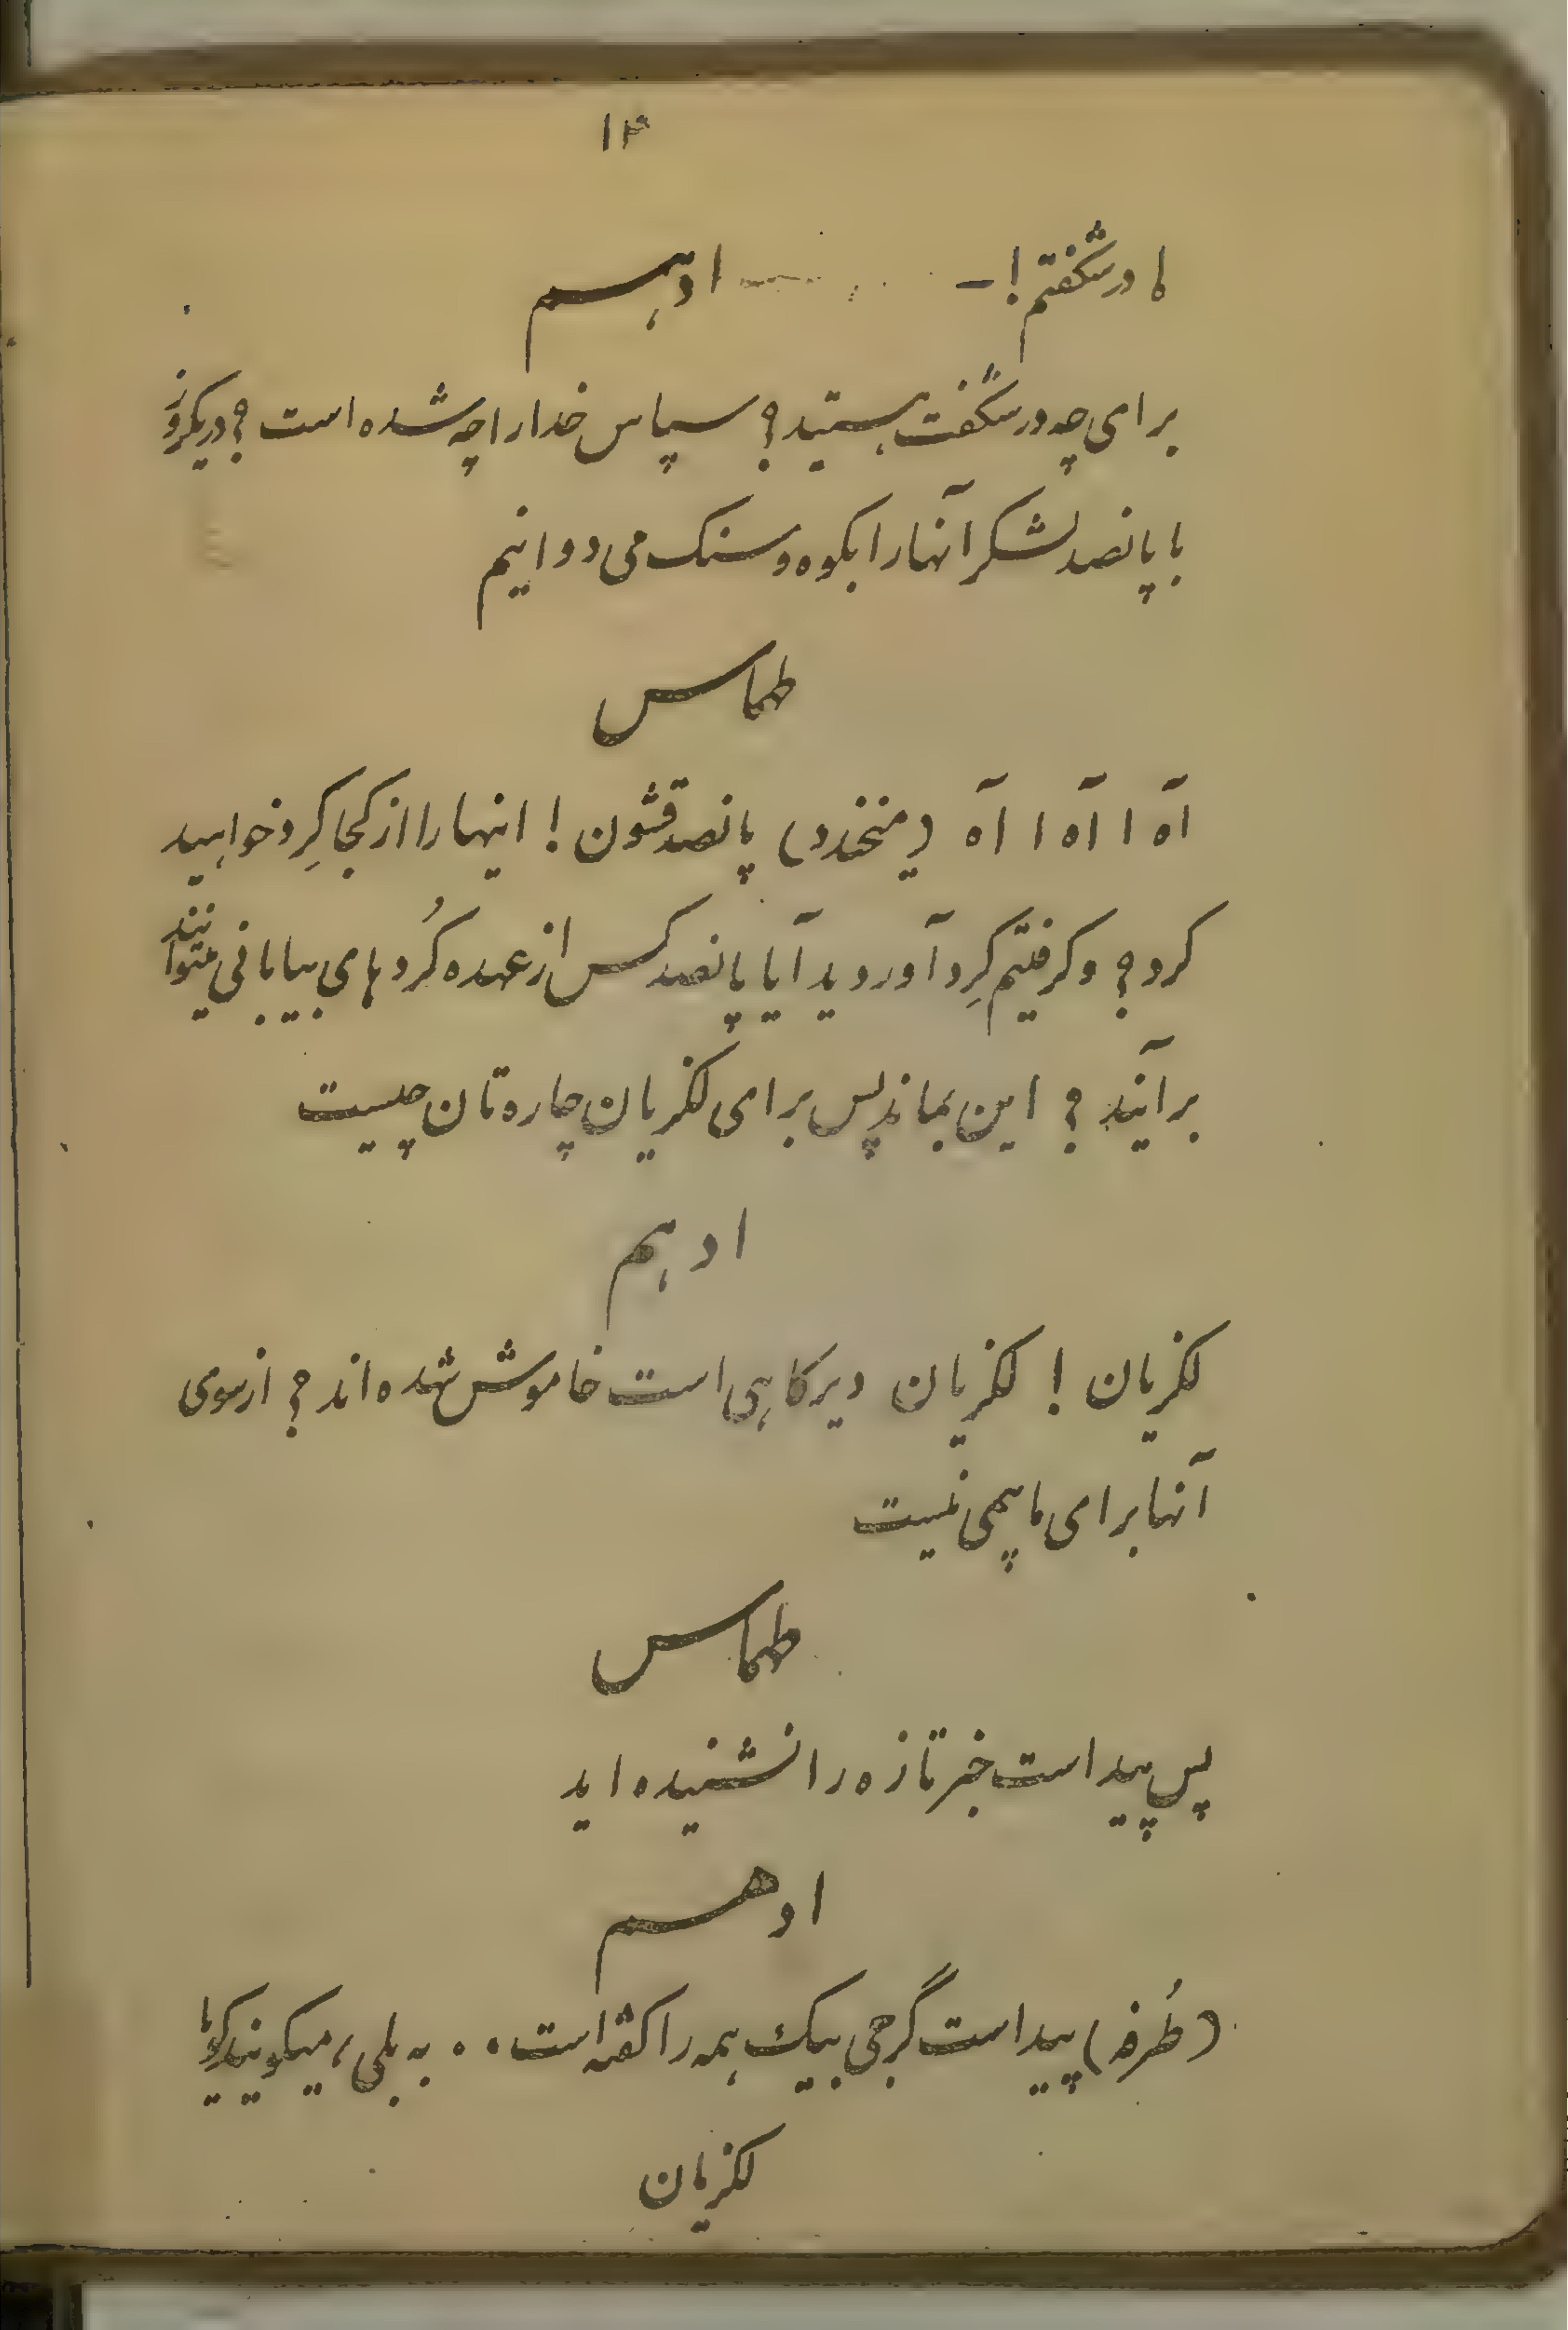 ۱۴
ما در شگفتم ! – ادهم
برای چه در شگفت هستید ؟ سپاس خدارا چه شده است ؟ در یکروز
با پانصد لشکر آنهارا بکوه و سنک می دوانیم
طهماس
آه ا آه ا آه (میخندد) پانصد قشون ! اینهارا از کجا کِرد خواهید
کرد ؟ و کرفتیم کِرد آوردید آیا پانصد کس از عهده کُردهای بیابانی میتوانند
برآیند ؟ این بماند پس برای لکزیان چاره تان چیست
ادهم
لکزیان ! لکزیان دیرکاهی است خاموش شده اند ؟ از سوی
آنها برای ما بیمی نیست
طهماس
پس پیداست خبر تازه را نشنیده اید
ادهم
(طُرفه) پیداست گرجی بیک همه را کفته است . . به بلی ، میکویند کویا
لکزیان